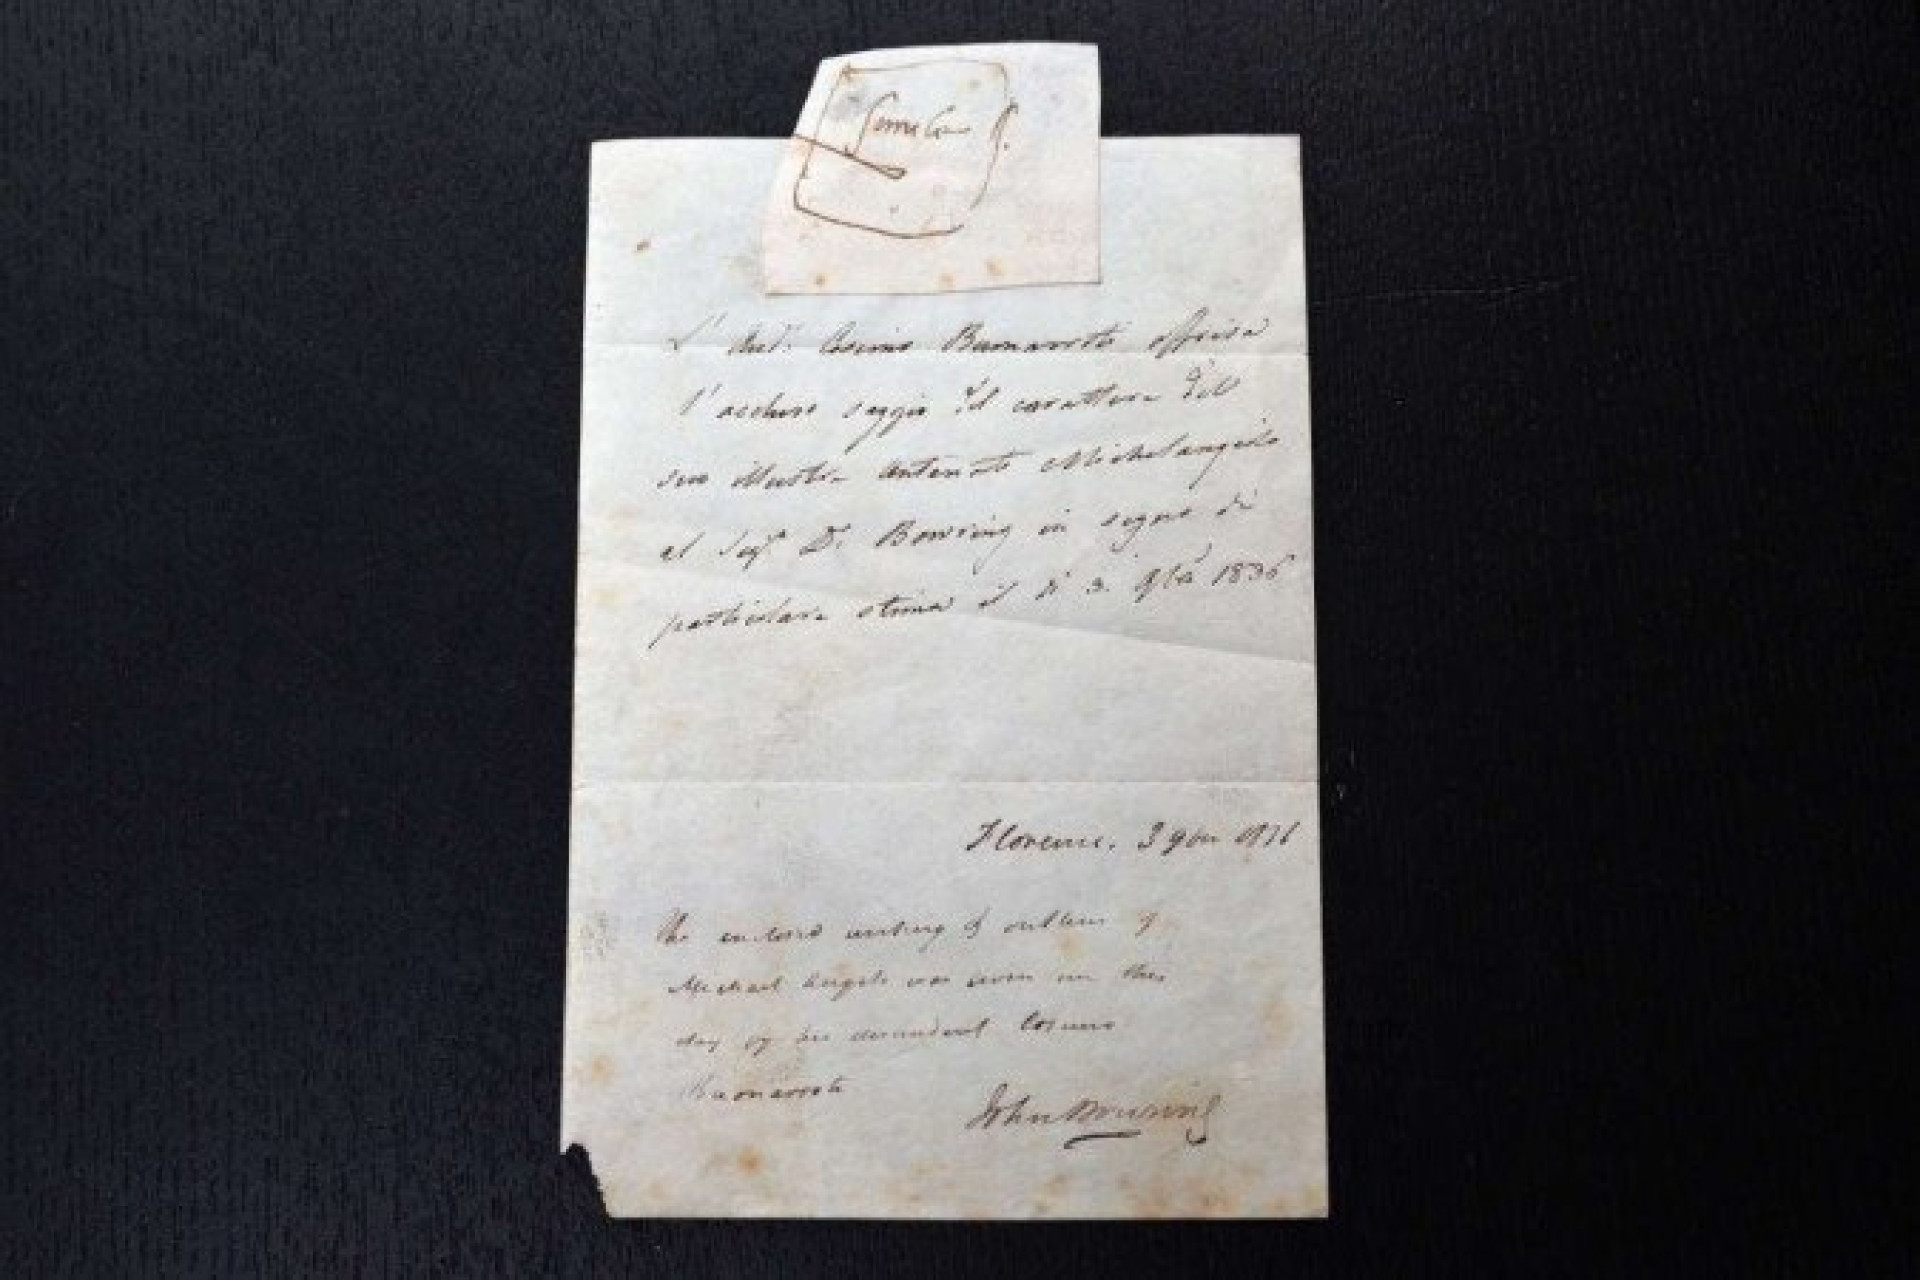 L' Aud.r Cosimo Buonarroti offriva
l' accluso saggio del carattere del
suo illustre antenato Michelangelo
al Sig.r D.r Bowring in segno di
particolare stima il dì 3. 9bre 1836
Florence. 3 9ber 1836
The enclosed writing & outlines of
Michael Angelo was given me this
day by his descendant Cosimo
Buonarroti
John Bowring